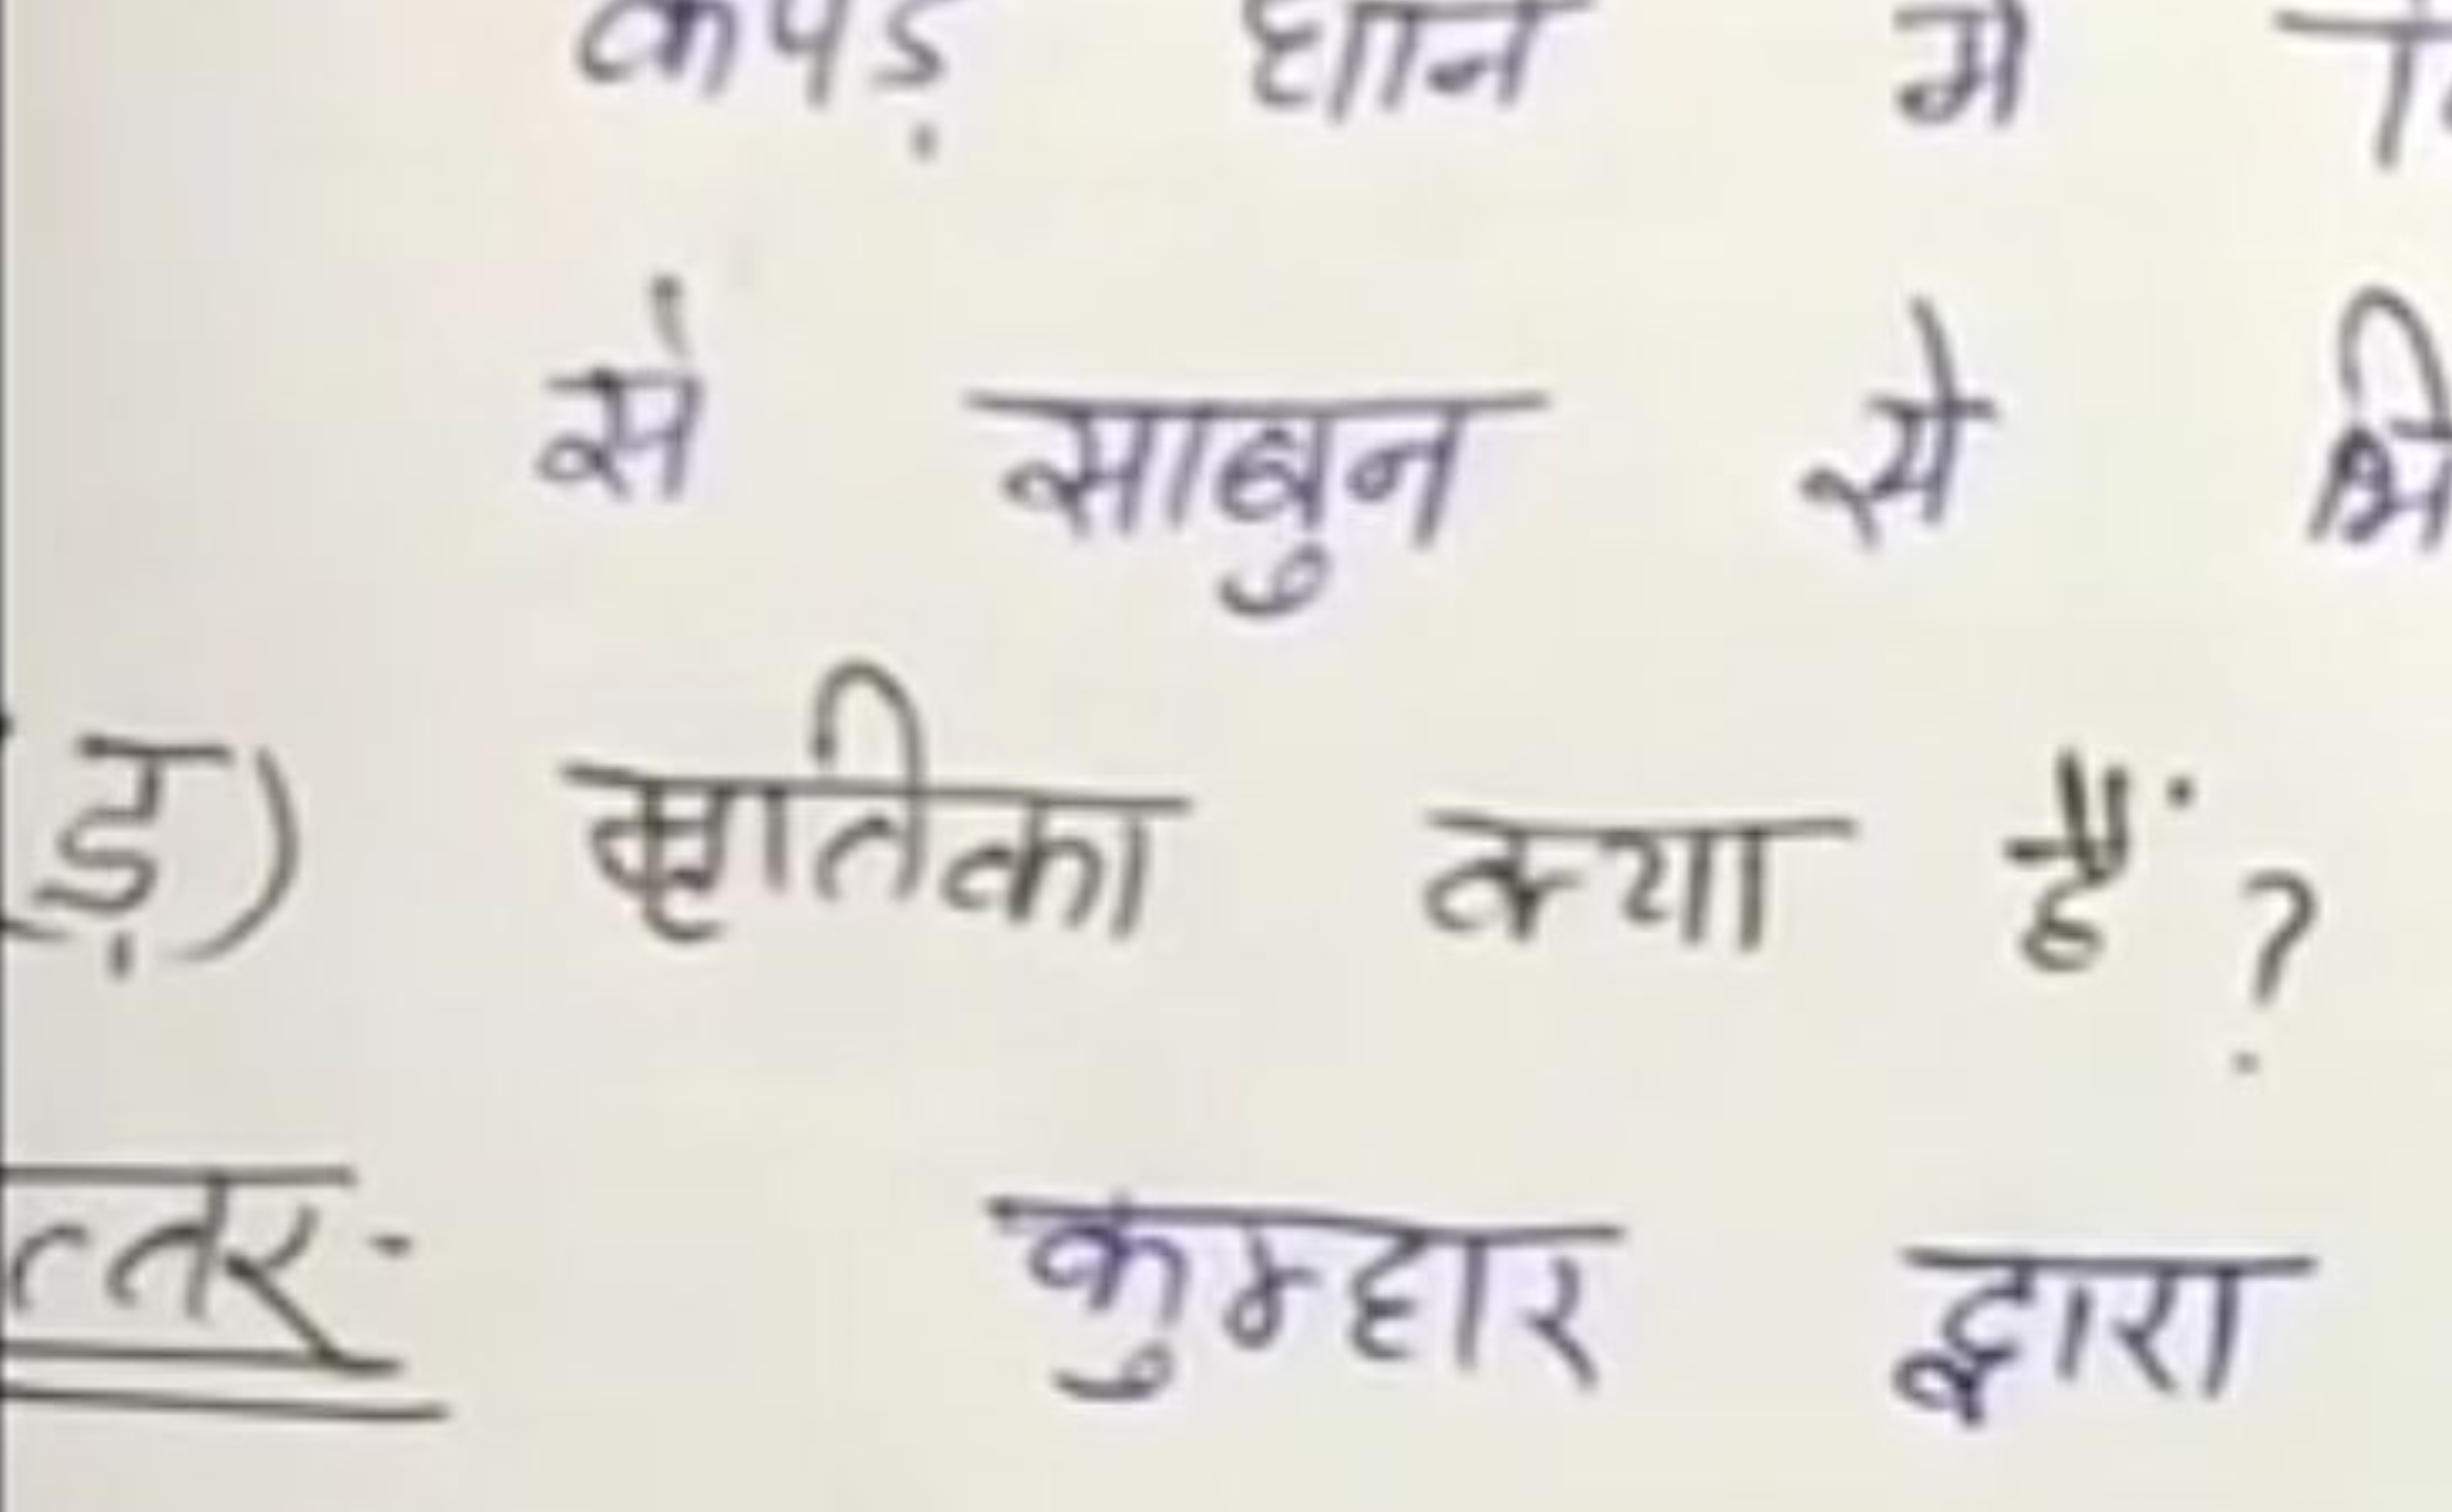 कपड़े धोने में
से साबुन से
ड़) मृतिका क्या हैं?
त्तर- कुम्हार द्वारा